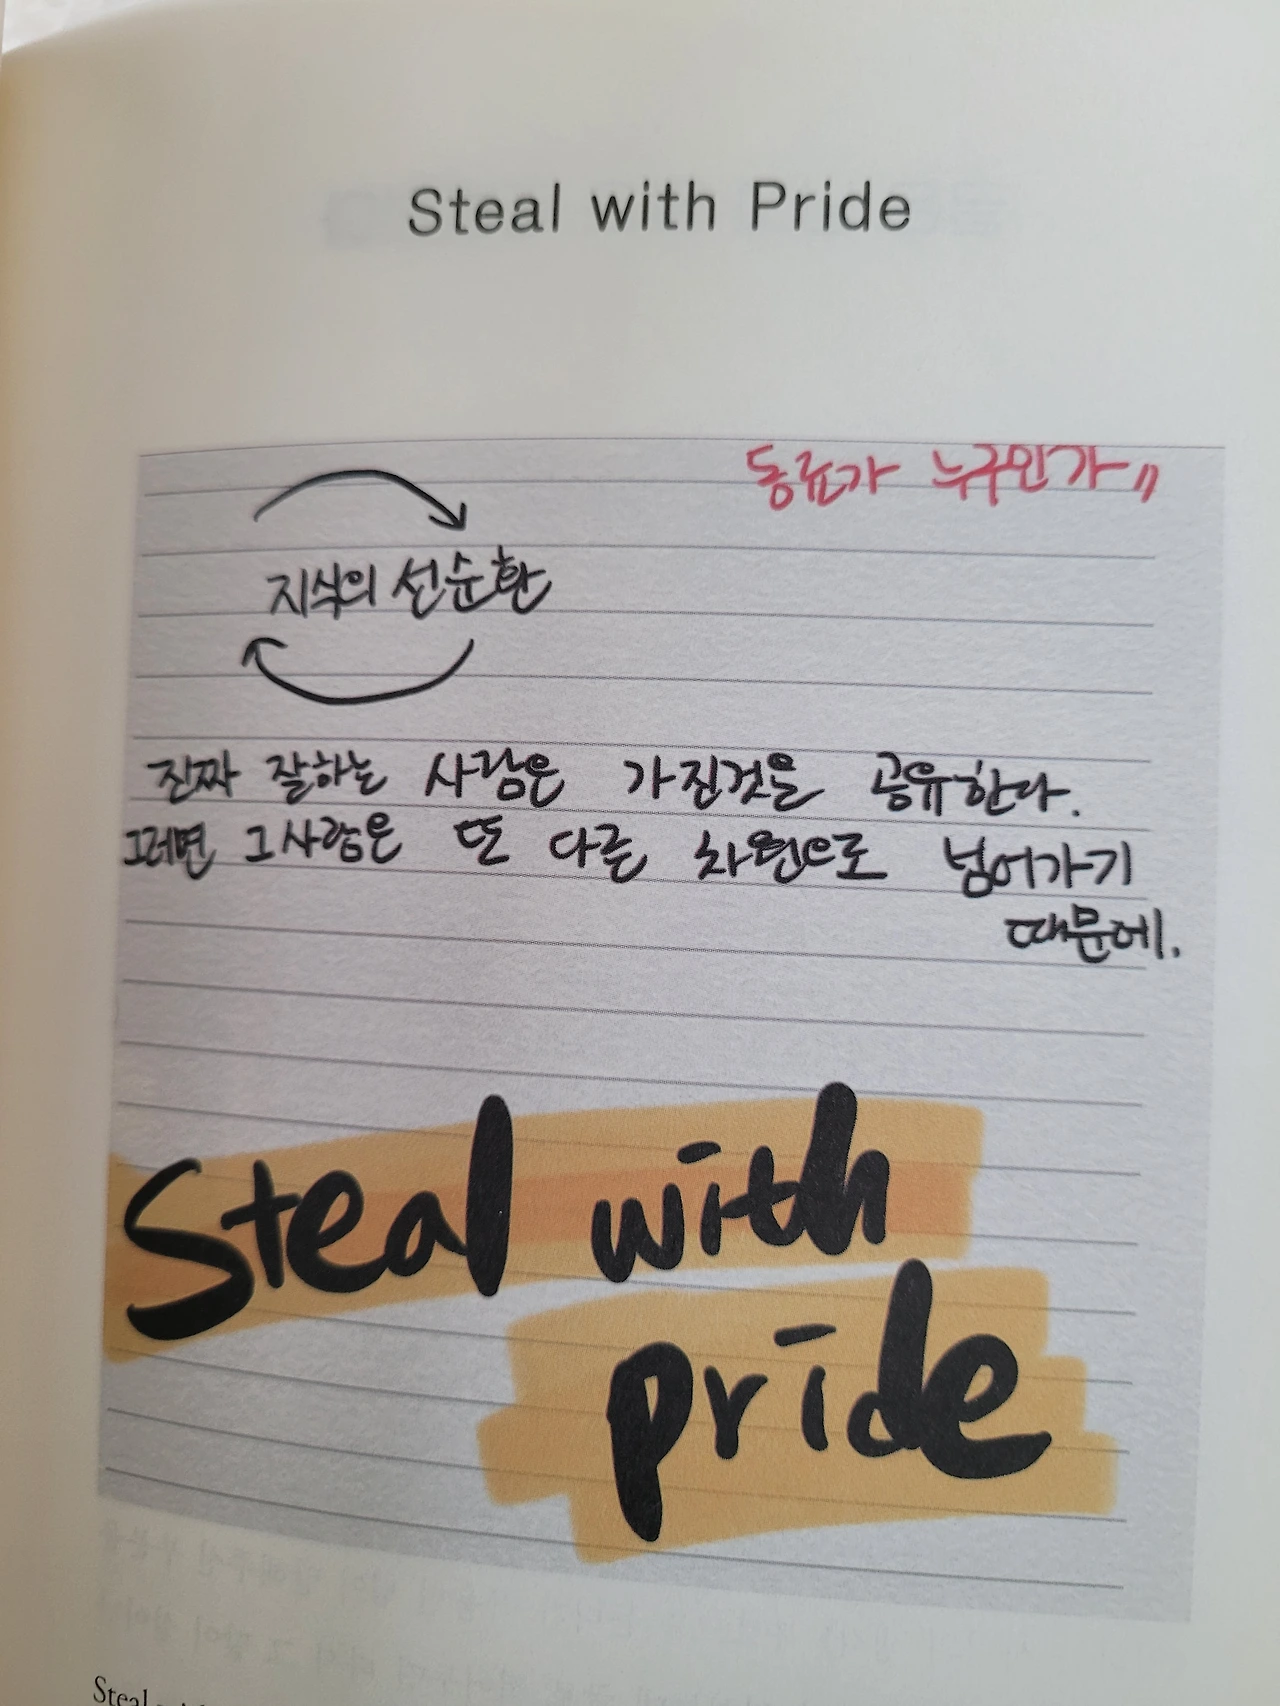 Steal with Pride
동료가 누구인가"
지식의 선순환
진짜 잘하는 사람은 가진것을 공유한다.
그러면 그사람은 또 다른 차원으로 넘어가기
때문에.
Steal with
pride
Steal